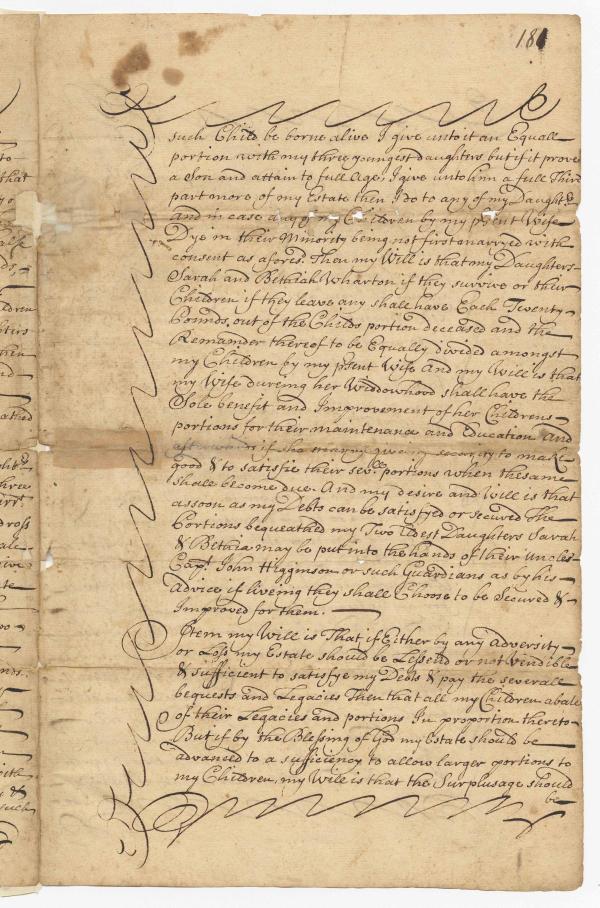 181
such Child be borne alive I give unto it an Equall
portion with my three youngest daughters but if it prove
a Son and attain to full Age, I give unto him a full Third
part more of my Estate then I do to any of my Daughtrs
And in case any of my Children by my psent Wife
Dye in their Minority being not first marryed with
consent as afores. Then my Will is that my Daughters
Sarah and Bethiah Wharton if they survive or their
Children if they leave any shall have Each Twenty
Pounds, out of the Childs portion deceased and the
Remainder thereof to be Equally divided amongst
my Children by my psent Wife And my Will is that
my Wife dureing her Widdowhood shall have the
Sole benefit and Improvement of her Childrens
portions for their maintenance and Education And
afterwards if she marry giveing security to make
good & to satisfie their sevll. portions when the same
shall become due. And my desire and Will is that
assoon as my Debts can be satisfyed or secured The
Portions bequeathed my Two Eldest Daughters Sarah
& Bethia may be put into the hands of their Uncles
Capt. John Higginson or such Guardians as by his
Advice if liveing they shall Choose to be Secured &
Improved for them.
Item my Will is That if Either by any Adversity
or Loss my Estate should be Lessened or not vendible
& sufficient to satisfye my Debts & pay the severall
bequests and Legacies Then that all my Children abate
of their Legacies and portions In proportion thereto
But if by the Blessing of God my Estate should be
advanced to a sufficiency to allow larger portions to
my Children, my Will is that the Surplusage should
be